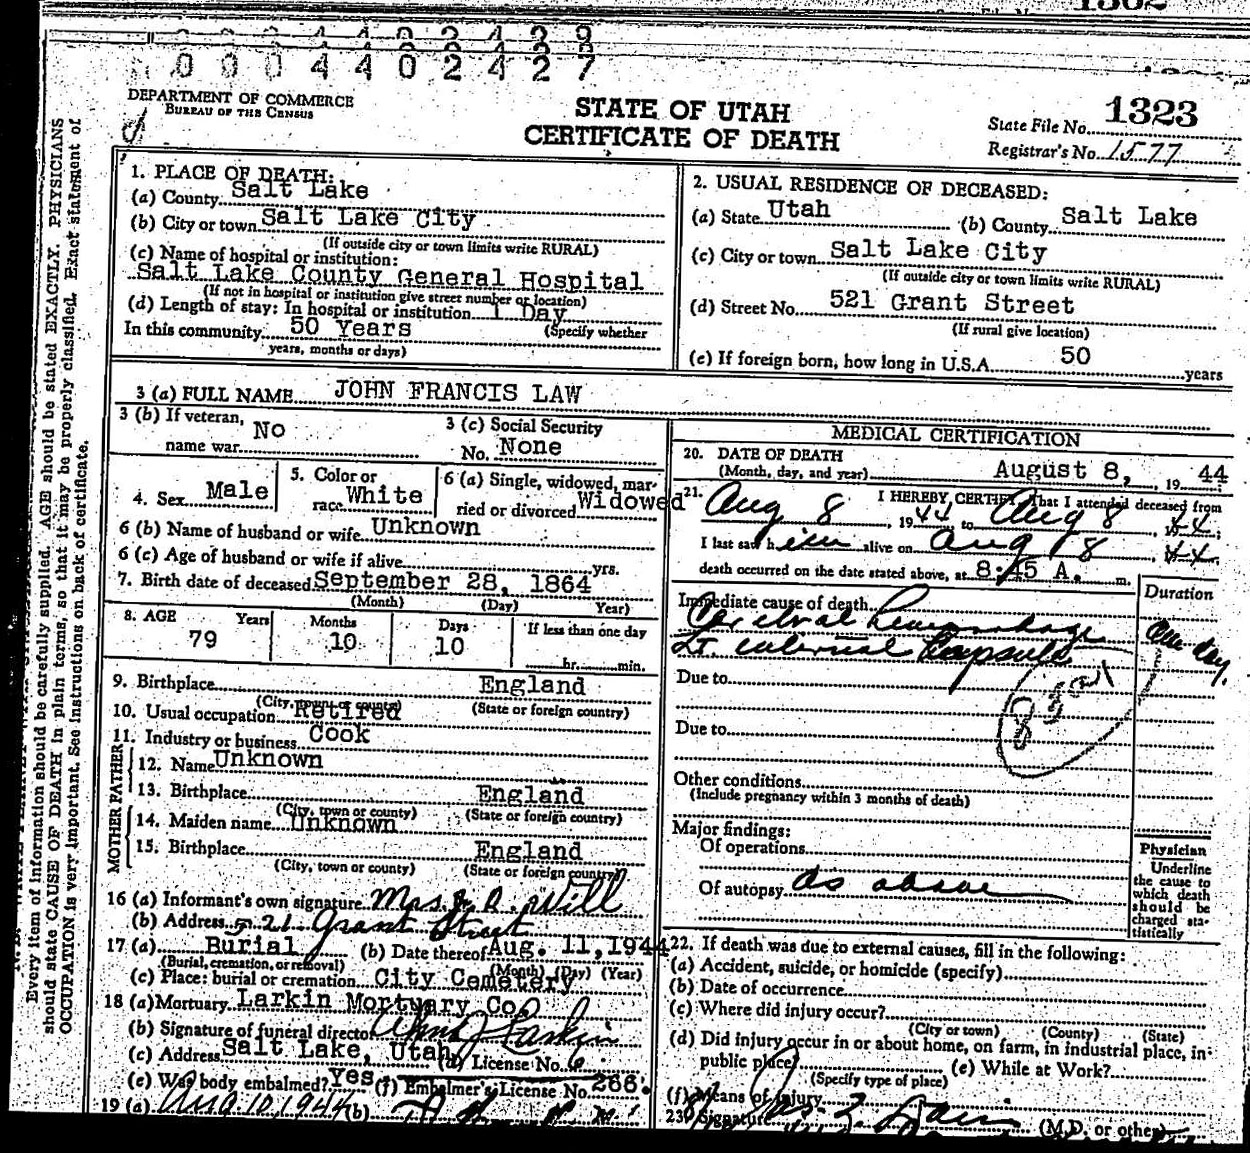 1302
0 0 0 4 4 0 2 4 2 9
0 0 0 4 4 0 2 4 2 7
DEPARTMENT OF COMMERCE
BUREAU OF THE CENSUS
STATE OF UTAH
CERTIFICATE OF DEATH
State File No. 1323
Registrar's No. 1577
1. PLACE OF DEATH:
(a) County Salt Lake
(b) City or town Salt Lake City
(If outside city or town limits write RURAL)
(c) Name of hospital or institution:
Salt Lake County General Hospital
(If not in hospital or institution give street number or location)
(d) Length of stay: In hospital or institution 1 Day
In this community 50 Years (Specify whether
years, months or days)
2. USUAL RESIDENCE OF DECEASED:
(a) State Utah (b) County Salt Lake
(c) City or town Salt Lake City
(If outside city or town limits write RURAL)
(d) Street No. 521 Grant Street
(If rural give location)
(e) If foreign born, how long in U.S.A. 50 years
3 (a) FULL NAME JOHN FRANCIS LAW
3 (b) If veteran, name war No
3 (c) Social Security No. None
4. Sex Male
5. Color or race White
6 (a) Single, widowed, married or divorced Widowed
6 (b) Name of husband or wife Unknown
6 (c) Age of husband or wife if alive yrs.
7. Birth date of deceased September 28, 1864
(Month) (Day) Year)
8. AGE Years Months Days If less than one day
79 10 10 hr. min.
9. Birthplace England
(City, town or county) (State or foreign country)
10. Usual occupation Retired
11. Industry or business Cook
FATHER
12. Name Unknown
13. Birthplace England
(City, town or county) (State or foreign country)
MOTHER
14. Maiden name Unknown
15. Birthplace England
(City, town or county) (State or foreign country)
16 (a) Informant's own signature Mrs. J. A. Will
(b) Address 521 Grant Street
17 (a) Burial (b) Date thereof Aug. 11, 1944
(Burial, cremation, or removal) (Month) (Day) (Year)
(c) Place: burial or cremation City Cemetery
18 (a) Mortuary Larkin Mortuary Co.
(b) Signature of funeral director Larkin
(c) Address Salt Lake, Utah (d) License No. 6
(e) Was body embalmed? Yes (f) Embalmer's License No. 266.
19 (a) Aug 10, 1944 (b)
MEDICAL CERTIFICATION
20. DATE OF DEATH
(Month, day, and year) August 8, 1944
21. I HEREBY CERTIFY That I attended deceased from
Aug 8, 1944 to Aug 8 44;
I last saw him alive on Aug 8 44
death occurred on the date stated above, at 8:45 A. m.
Immediate cause of death Duration
Cerebral hemorrhage
Lt. internal Capsule One day.
Due to
83a1
Due to
Other conditions
(Include pregnancy within 3 months of death)
Major findings:
Of operations
Of autopsy as above
Physician
Underline
the cause to
which death
should be
charged sta-
tistically
22. If death was due to external causes, fill in the following:
(a) Accident, suicide, or homicide (specify)
(b) Date of occurrence
(c) Where did injury occur?
(City or town) (County) (State)
(d) Did injury occur in or about home, on farm, in industrial place, in
public place) (e) While at Work?
(Specify type of place)
(f) Means of injury
23. Signature (M.D. or other)
Every item of information should be carefully supplied. AGE should be stated EXACTLY. PHYSICIANS
should state CAUSE OF DEATH in plain terms, so that it may be properly classified. Exact statement of
OCCUPATION is very important. See instructions on back of certificate.